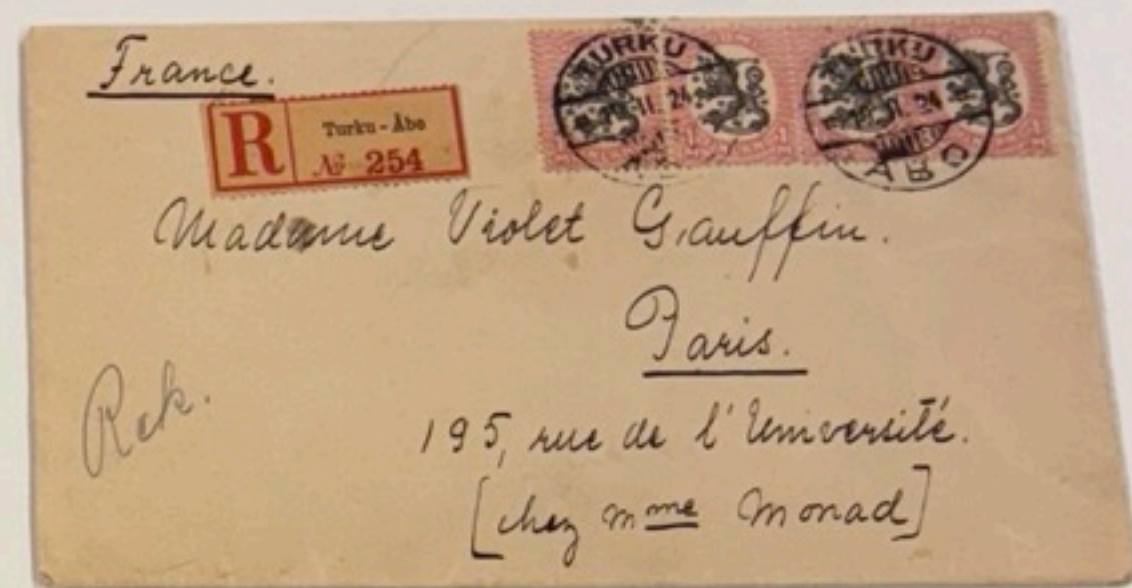 France.
R Turku - Åbo
№ 254
TURKU
II. 24
TURKU
II. 24
ÅBO
1
1
Madame Violet Gauffin.
Paris.
Rek.
195, rue de l'Université.
[chez Mme Monad]